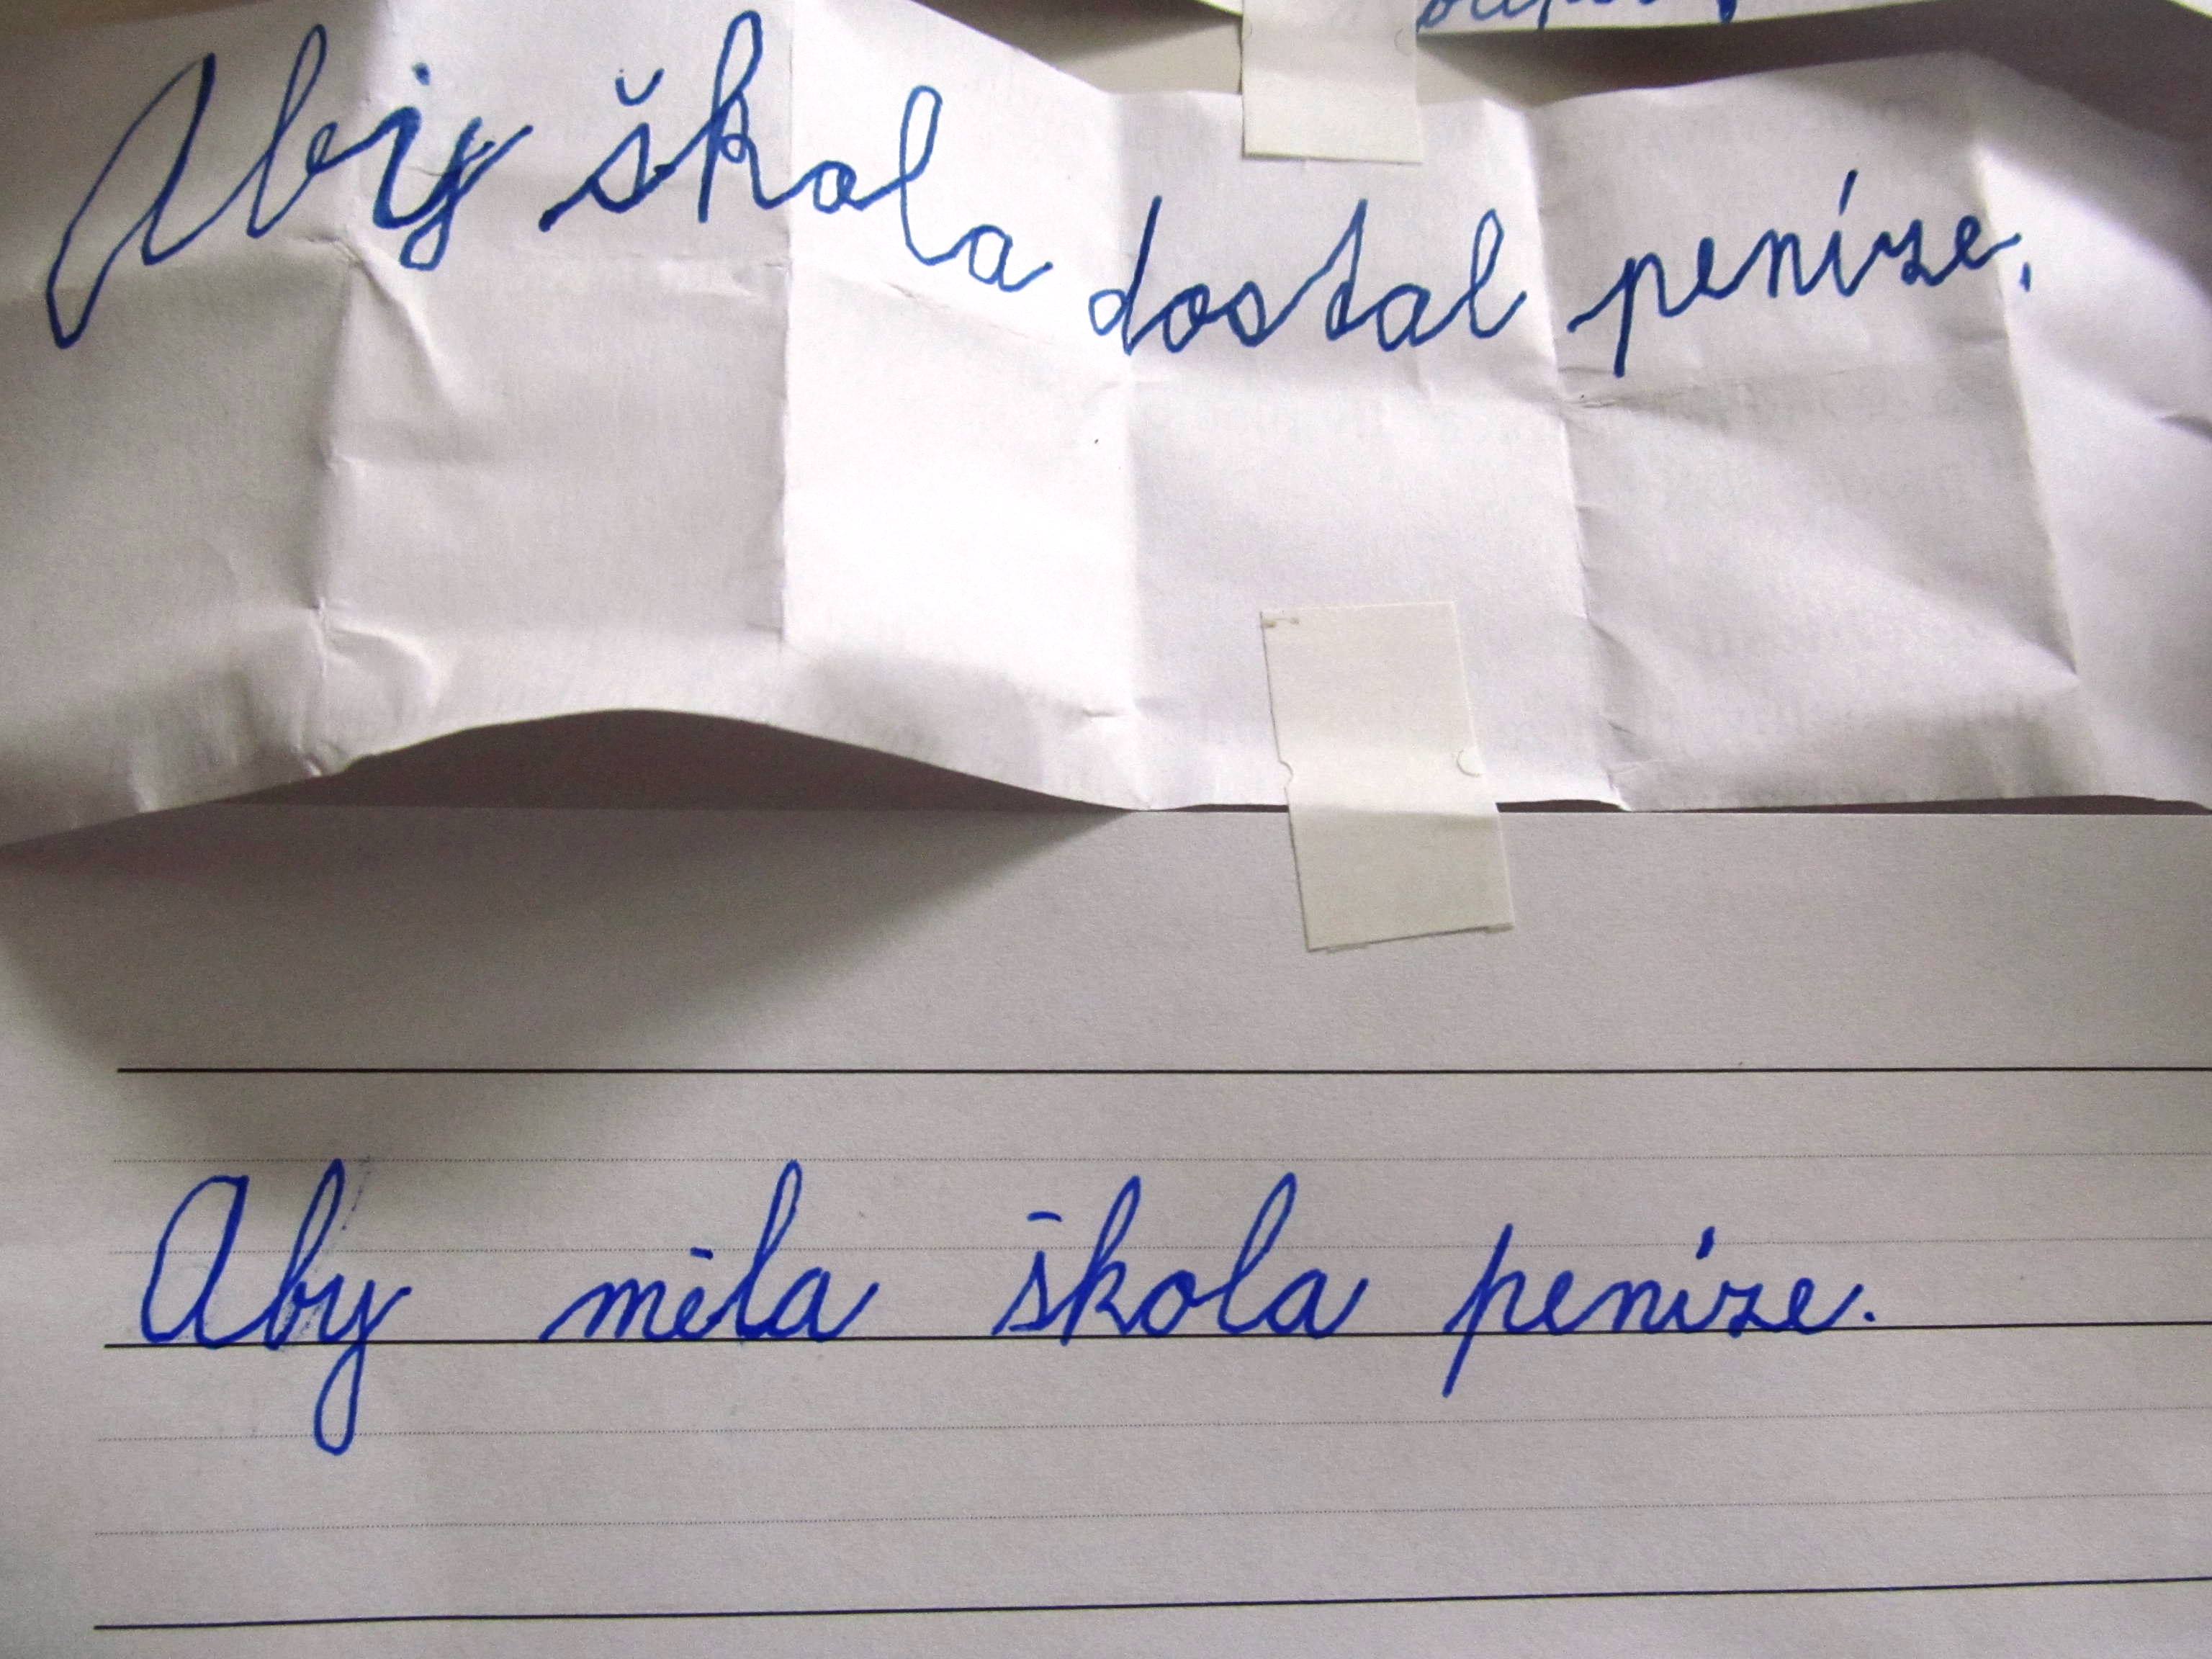 Aby škola dostal peníze.
Aby měla škola peníze.